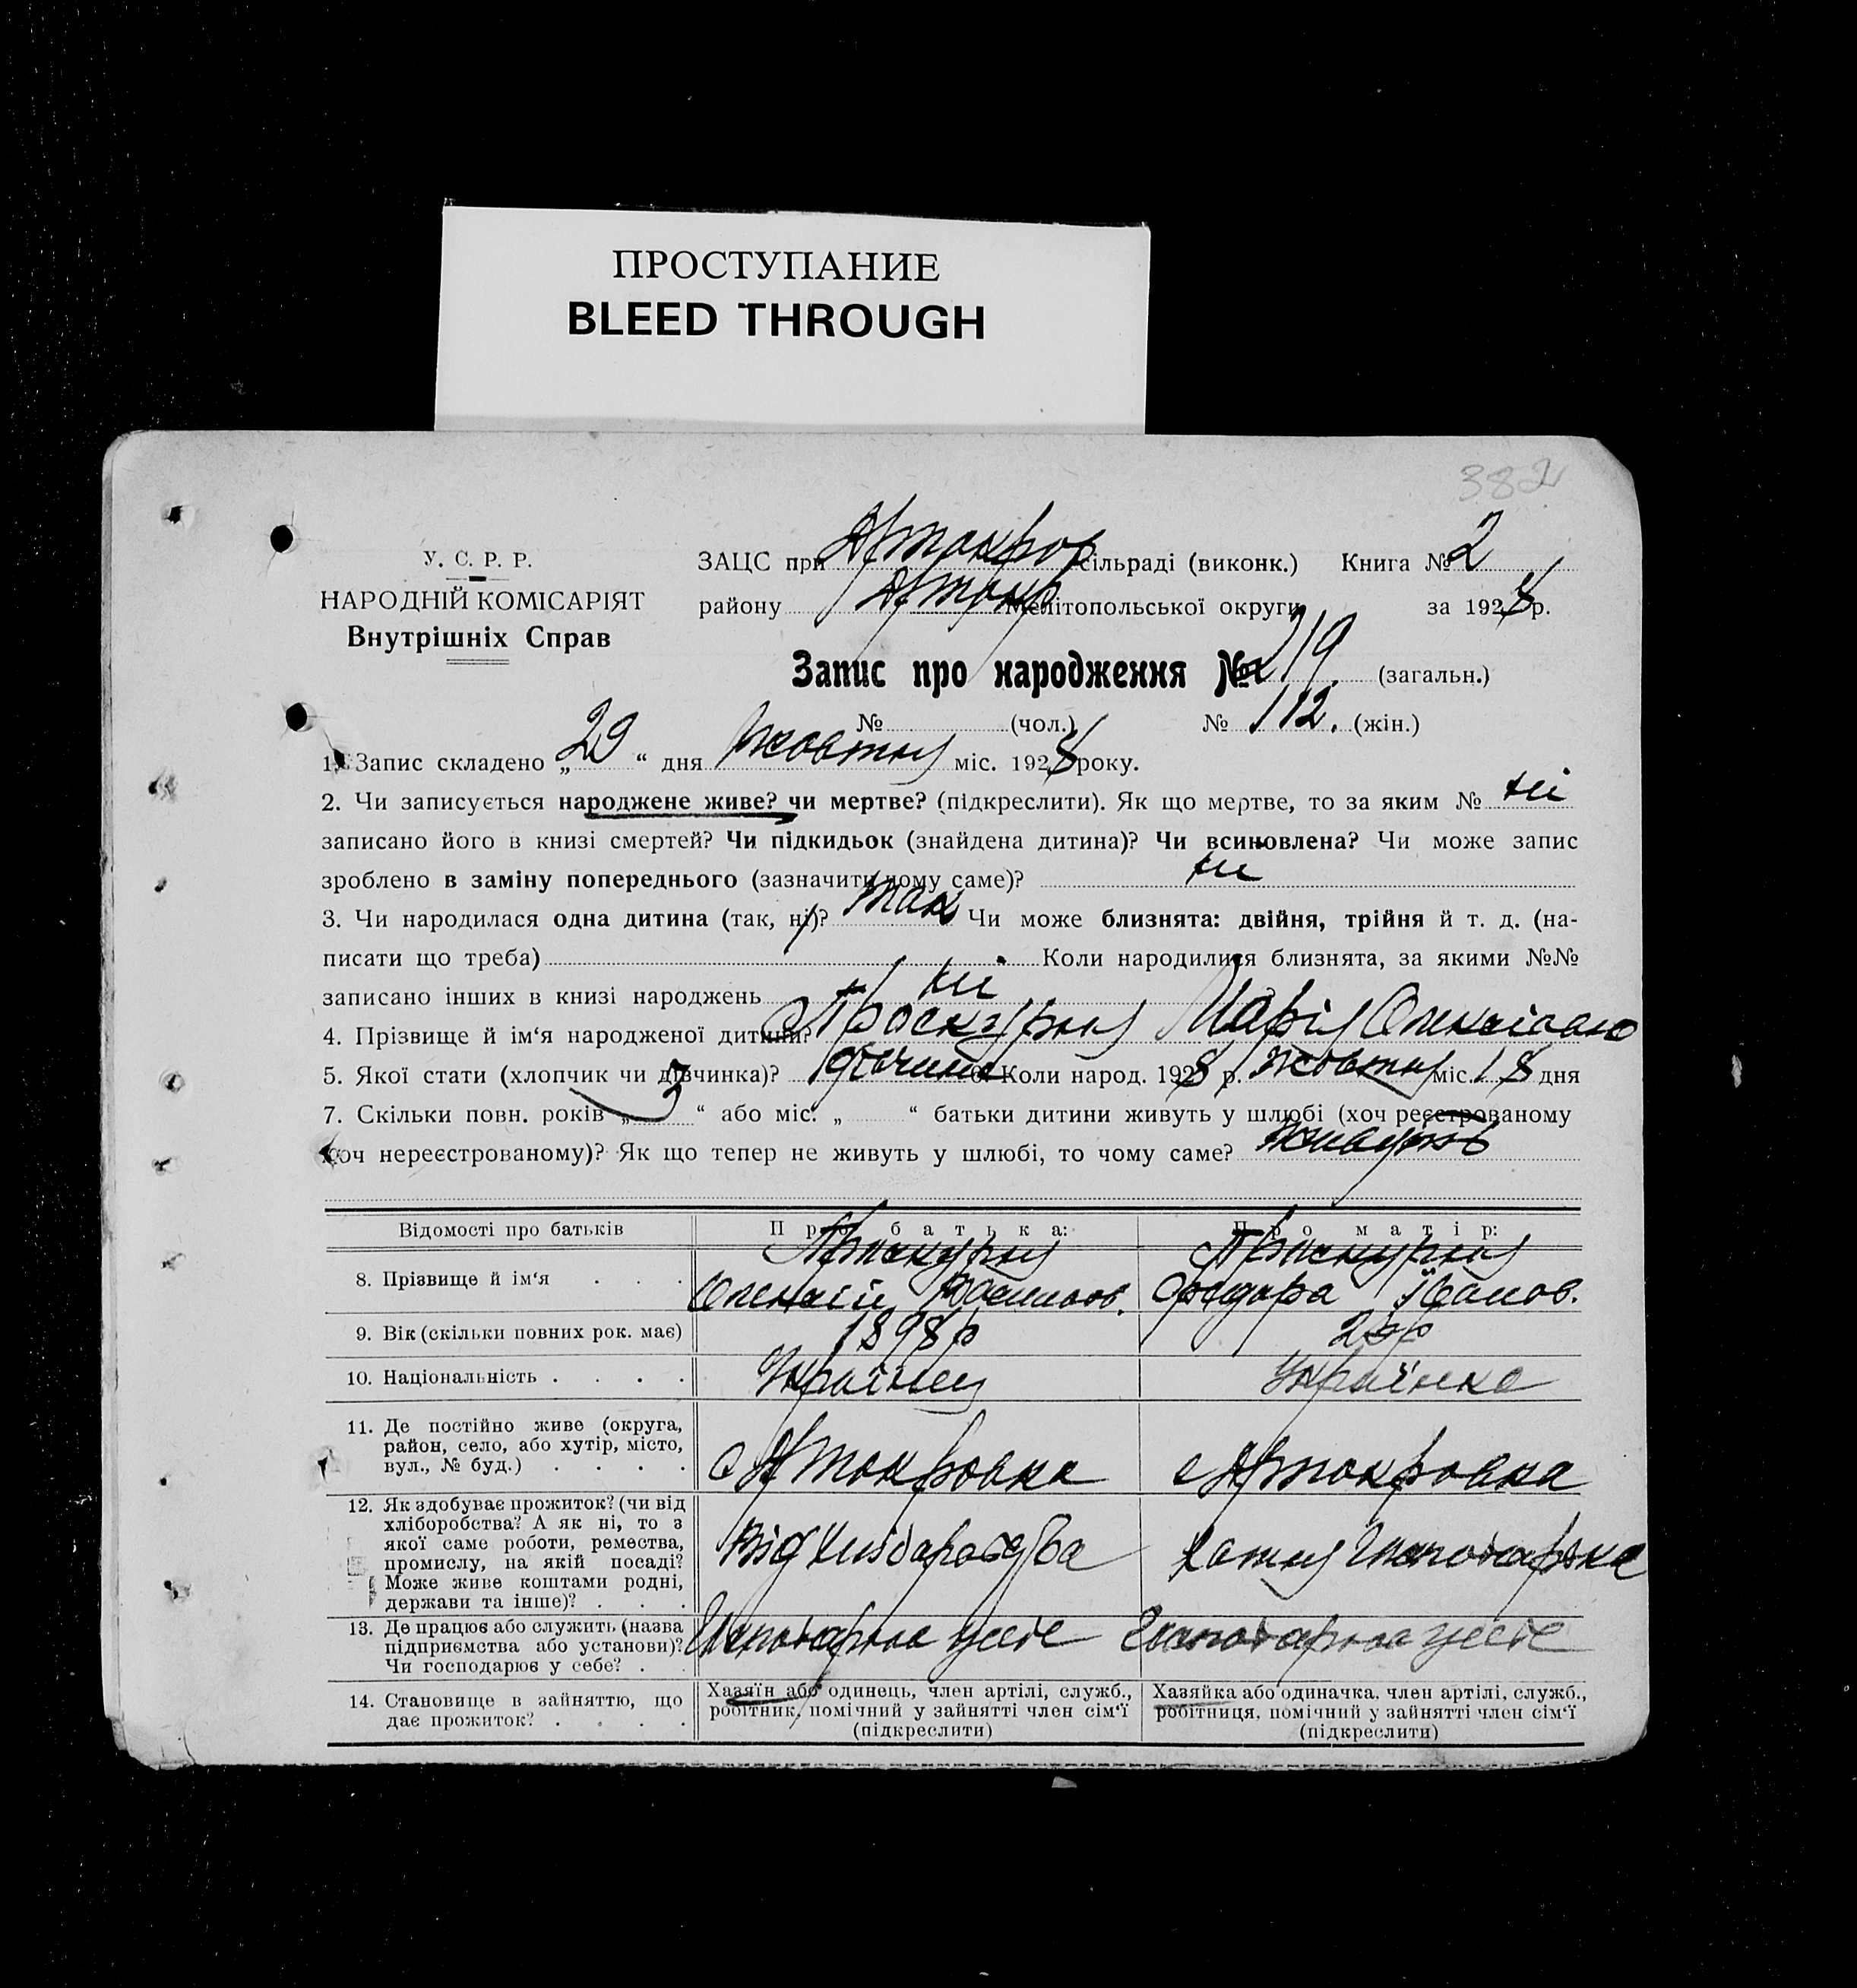 ПРОСТУПАНИЕ
BLEED THROUGH
382
У. С. Р. Р.
НАРОДНІЙ КОМІСАРІЯТ
Внутрішніх Справ
ЗАЦС при сільраді (виконк.) Книга № 2
району Мелітопольської округи за 1928 р.
Запис про народження № 219 (загальн.)
№ (чол.) № 112. (жін.)
1. Запис складено „ 29 “ дня жовтня міс. 1928 року.
2. Чи записується народжене живе? чи мертве? (підкреслити). Як що мертве, то за яким № ні
записано його в книзі смертей? Чи підкидьок (знайдена дитина)? Чи всиновлена? Чи може запис
зроблено в заміну попереднього (зазначити чому саме)? ні
3. Чи народилася одна дитина (так, ні)? так Чи може близнята: двійня, трійня й т. д. (на-
писати що треба) Коли народилися близнята, за якими №№
записано інших в книзі народжень ні
4. Прізвище й ім‘я народженої дитини? Проскурня Марія Олексіівна
5. Якої стати (хлопчик чи дівчинка)? дівчина 6. Коли народ. 1928 р. жовтня міс. 18 дня
7. Скільки повн. років „ 3 “ або міс. „ “ батьки дитини живуть у шлюбі (хоч реєстрованому
хоч нереєстрованому)? Як що тепер не живуть у шлюбі, то чому саме? живуть
Відомості про батьків Про батька: Про матір:
8. Прізвище й ім‘я . . . Проскурня Олексій Васильов. Проскурня Федора Іванов.
9. Вік (скільки повних рок. має) 1898 р
10. Національність . . . . Українец Українка
11. Де постійно живе (округа,
район, село, або хутір, місто,
вул., № буд.) . . . .
12. Як здобуває прожиток? (чи від
хліборобства? А як ні, то з
якої саме роботи, ремества,
промислу, на якій посаді?
Може живе коштами родні,
держави та інше)? . . .
Від хліборобства Хатня господарька
13. Де працює або служить (назва
підприємства або установи)?
Чи господарює у себе? . .
Господарює у себе Господарює у себе
14. Становище в зайняттю, що
дає прожиток? . . . .
Хазяїн або одинець, член артілі, служб.,
робітник, помічний у зайнятті член сім‘ї
(підкреслити)
Хазяйка або одиначка, член артілі, служб.,
робітниця, помічний у зайнятті член сім‘ї
(підкреслити)